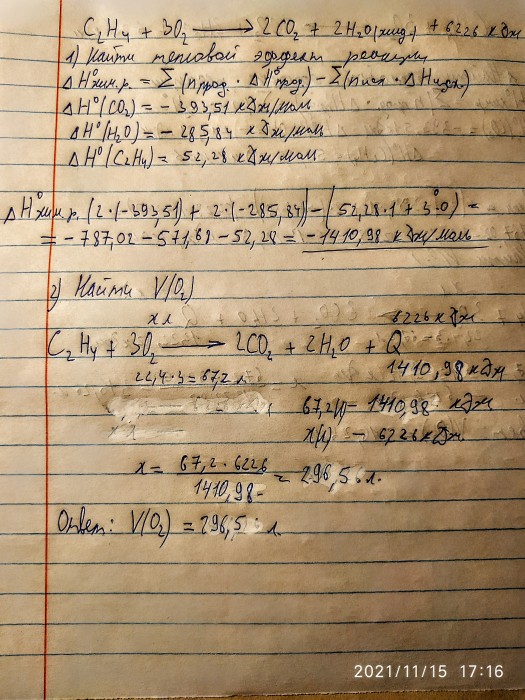 C₂H₄ + 3O₂ ⟶ 2CO₂ + 2H₂O(жид) + 6226 кДж
1) Найти тепловой эффект реакции
ΔH⁰хим.р. = Σ(nпрод. · ΔH⁰прод.) − Σ(nисх · ΔHисх)
ΔH⁰(CO₂) = − 393,51 кДж/моль
ΔH⁰(H₂O) = − 285,84 кДж/моль
ΔH⁰(C₂H₄) = 52,28 кДж/моль
ΔH⁰хим.р. (2·(−39351) + 2·(−285,84)) − (52,28·1 + 3·0) =
= − 787,02 − 571,68 − 52,28 = −1410,98 кДж/моль
2) Найти V(O₂)
x л 6226 кДж
C₂H₄ + 3O₂ ⟶ 2CO₂ + 2H₂O + Q
22,4·3 = 67,2 л 1410,98 кДж
67,2(л) − 1410,98 кДж
x(л) − 6226 кДж
x = 67,2 · 6226 / 1410,98 = 296,5 л.
Ответ: V(O₂) = 296,5 л
2021/11/15 17:16